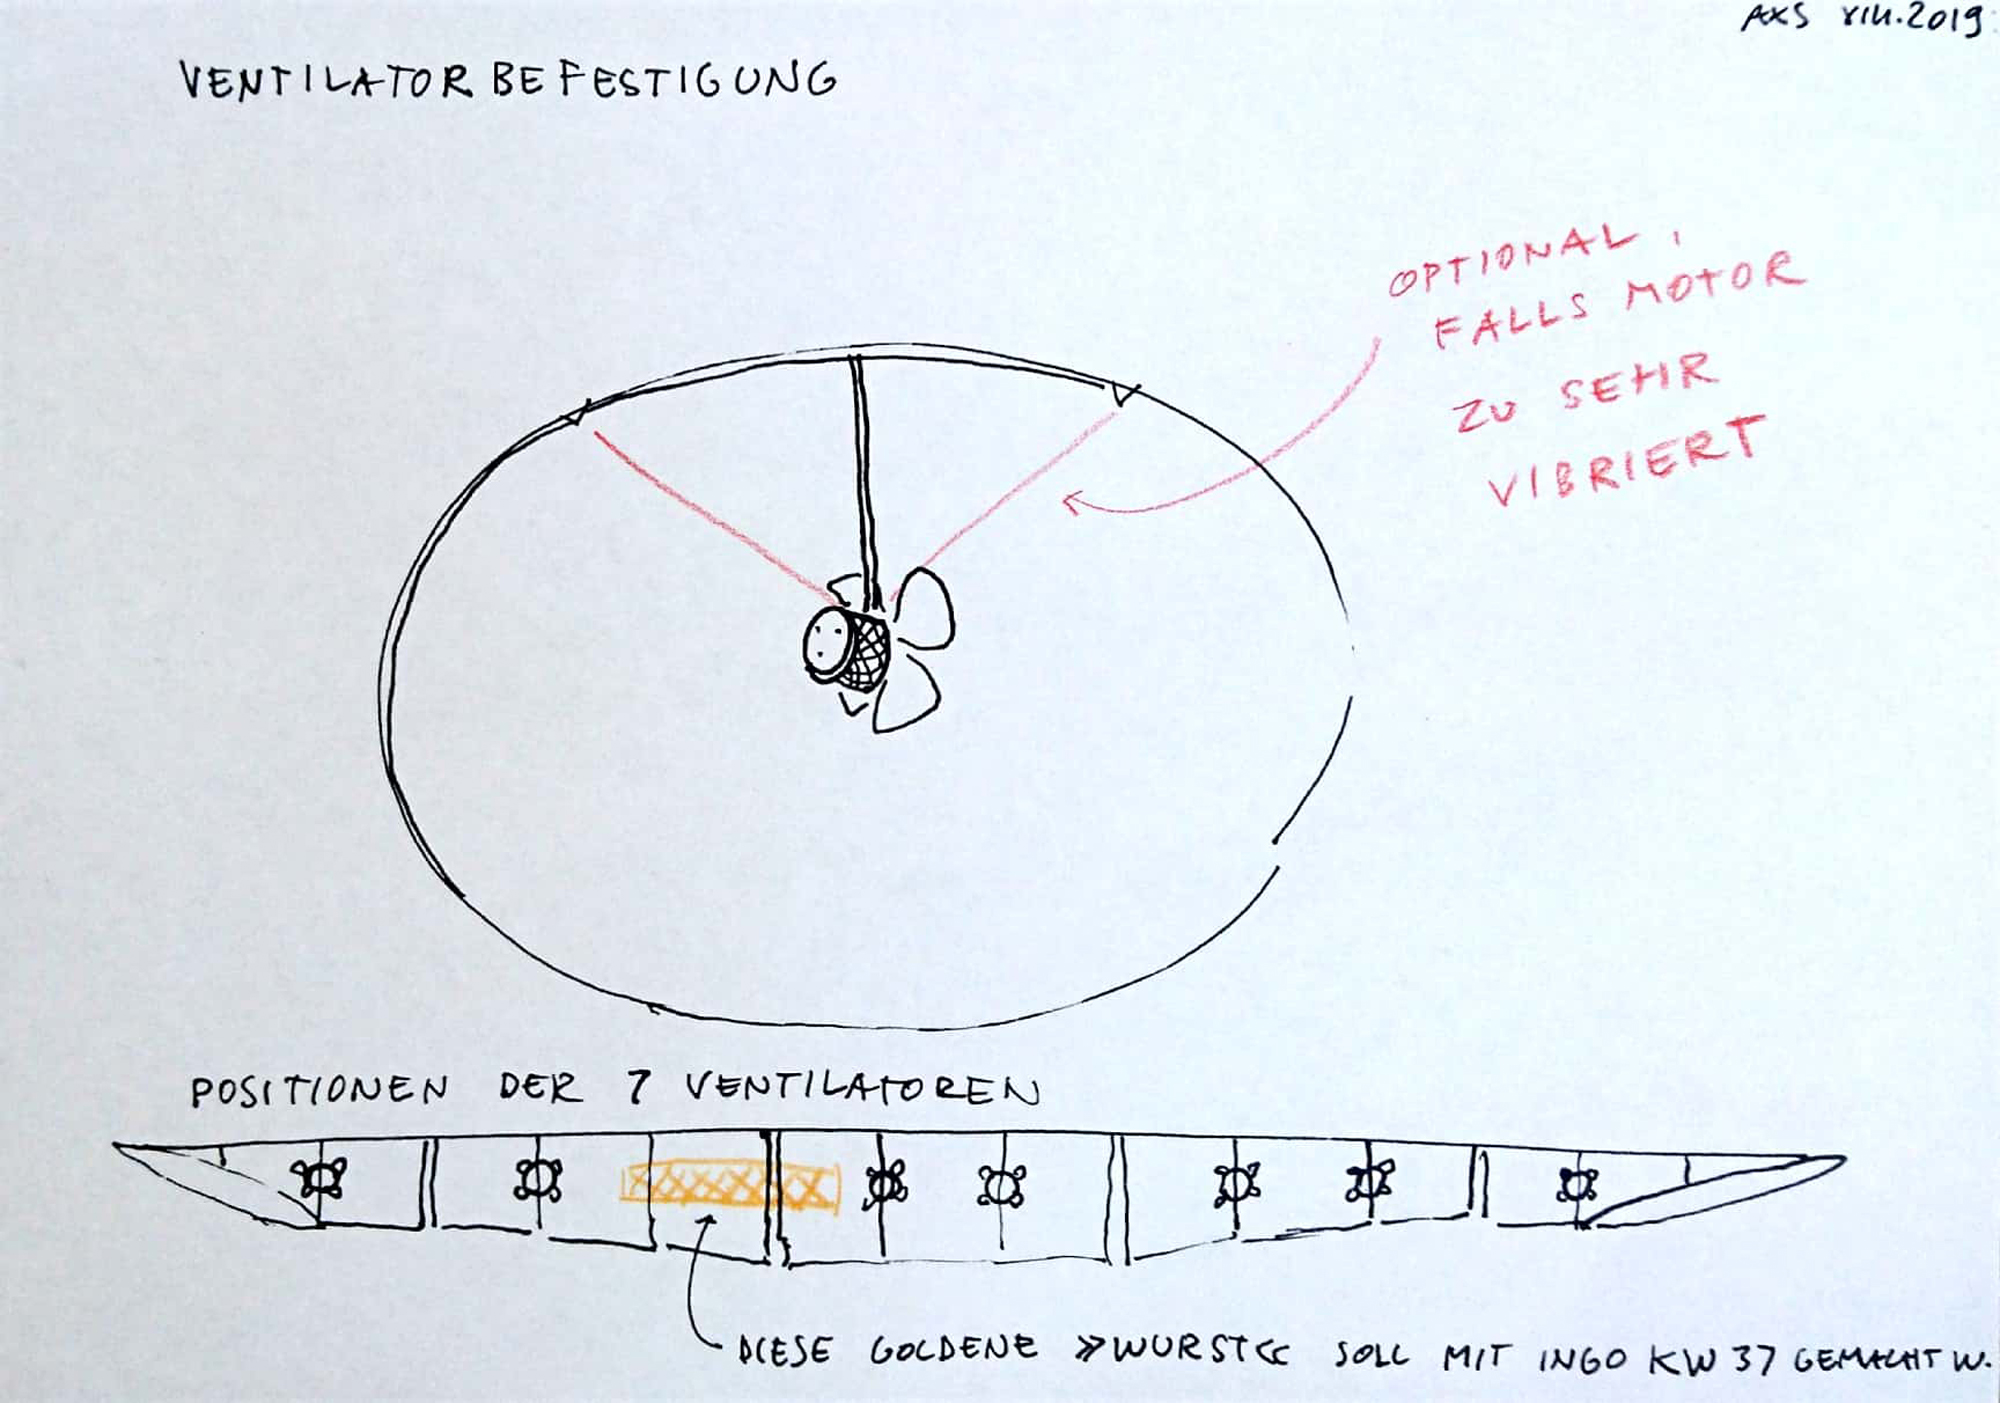 AXS VIII.2019
VENTILATORBEFESTIGUNG
OPTIONAL,
FALLS MOTOR
ZU SEHR
VIBRIERT
POSITIONEN DER 7 VENTILATOREN
DIESE GOLDENE »WURST« SOLL MIT INGO KW 37 GEMACHT W.